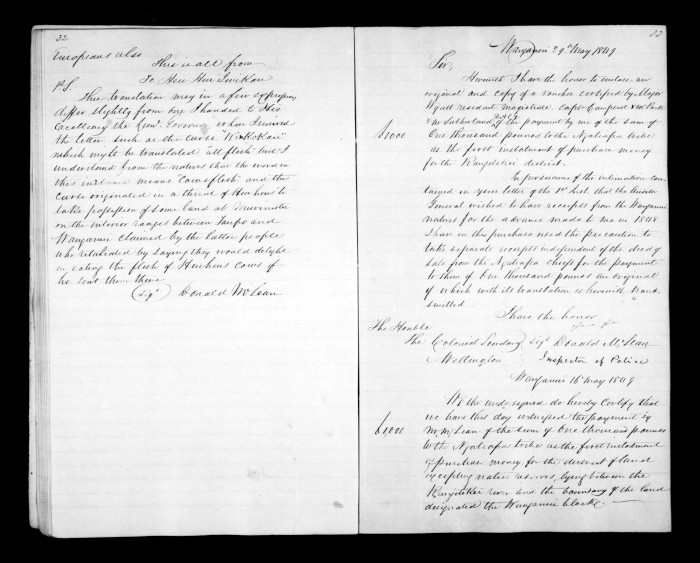 32
Europeans also
This is all from
To Heu Heu Iwikau
P.S. This translation may in a few expressions
differ slightly from one I handed to His
Excellency the Lieut. Governor when I received
the letter such as the curse "KiKoKau"
which might be translated "all flesh" but I
understand from the natives that the word in
this instance means "Cows flesh" and the
curse originated in a threat of Heu heu's to
take possession of some land at Murimotu
on the interior ranges between Taupo and
Wanganui claimed by the latter people
who retaliated by saying they would delight
in eating the flesh of Heuheus Cows if
he sent them there
(Sigd) Donald McLean
33
Wanganui 29th May 1849
Sir,
Herewith I have the honor to enclose an
original and copy of a voucher certified by Major
Wyatt resident magistrate Captn Campbell
& Mr Sutherland of the payment by me of the sum of
£1000 One thousand pounds to the Ngatiapa tribe
as the first instalment of purchase money
for the Rangitikei district.
In pursuance of the information con
tained in your letter of the 1st Inst. that the Auditor
General wished to have receipts from the Wanganui
natives for the advance made to me in 1848
I have in this purchase used the precaution to
take separate receipts independent of the deed of
sale from the Ngatiapa chiefs for the payment
to them of One thousand pounds an original
of which with its translation is herewith trans
mitted
I have the honor
The Honble
The Colonial Secretary Sigd Donald McLean
Wellington Inspector of Police
Wanganui 16th May 1849
We the undersigned do hereby certify that
we have this day witnessed the payment by
£1000 Mr McLean of the sum of One thousand pounds
to the Ngatiapa tribe as the first instalment
of purchase money for the district of land
excepting native reserves, lying between the
Rangitikei river and the boundary of the land
designated the Wanganui block.